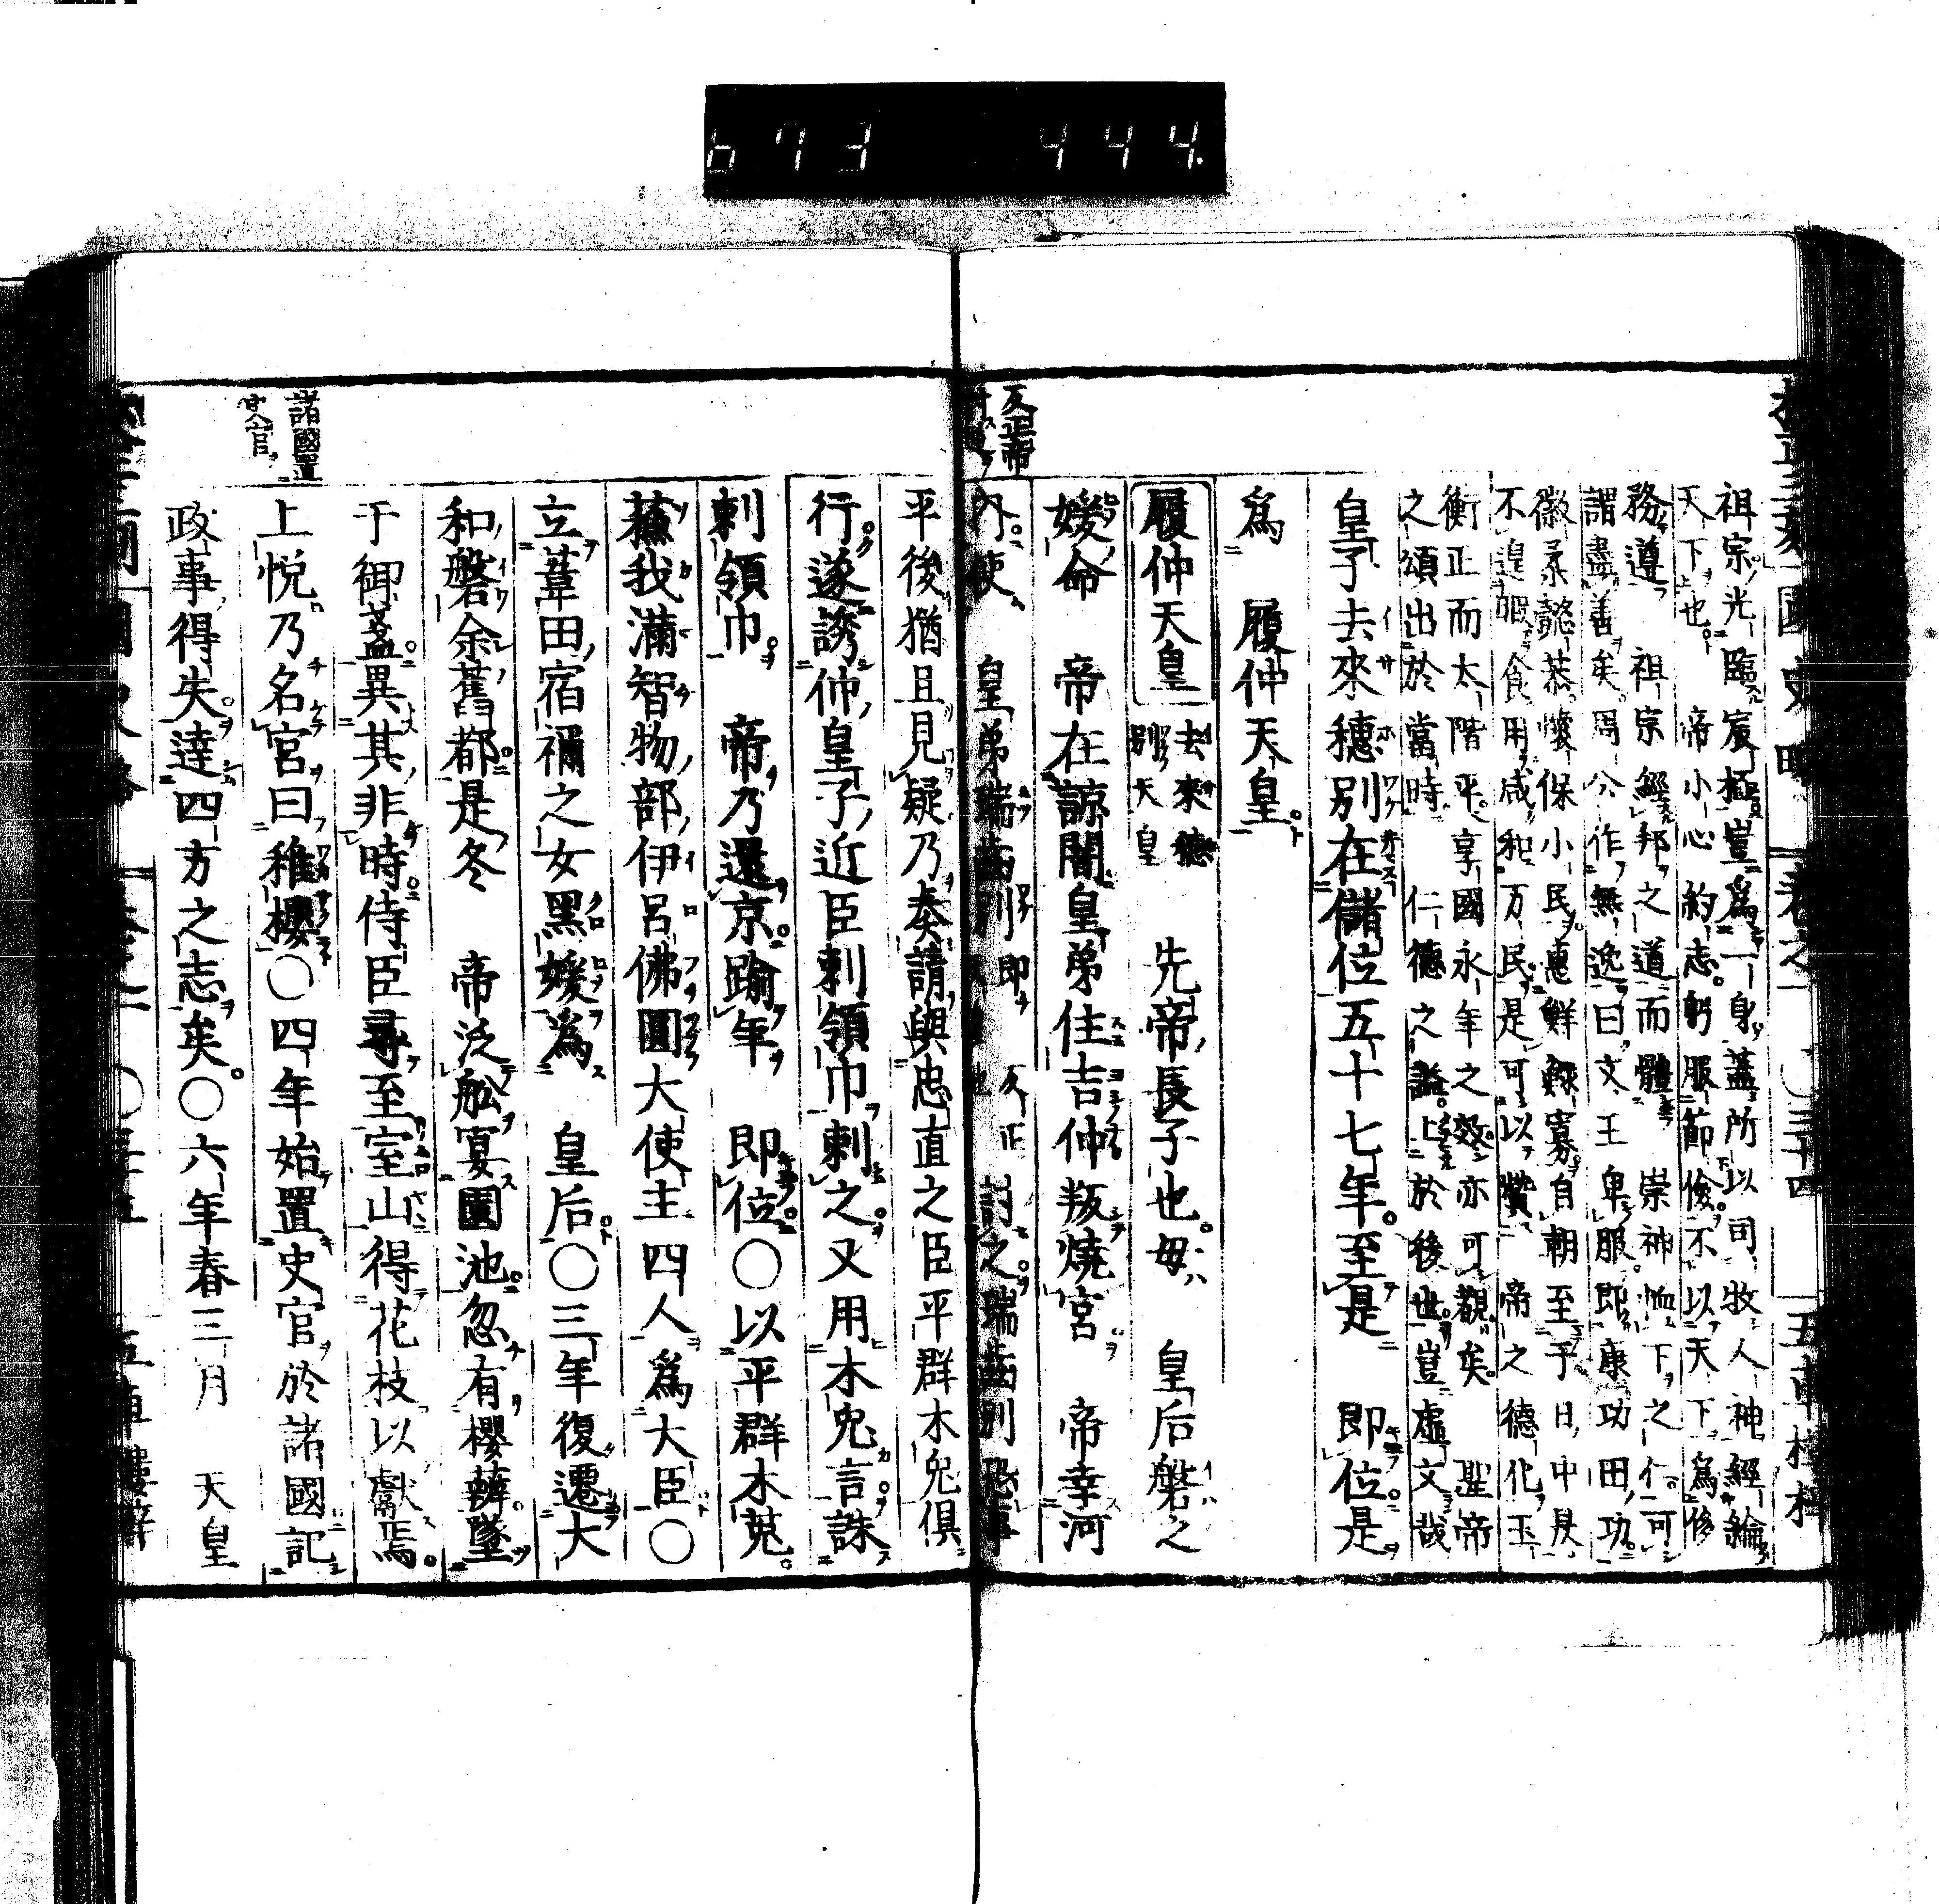 祖宗光臨宸極豈爲一身蓋所以司牧人神經綸
天下也 帝小心約志躬服節儉不以天下爲侈
務遵 祖宗經邦之道而體 崇神恤下之仁可
謂盡善矣周公作無逸曰文王卑服即康功田功
徽柔懿恭懷保小民惠鮮鰥寡自朝至于日中昃
不遑暇食用咸和万民是可以贊 帝之德化玉
衡正而太階平享國永年之效亦可觀矣 聖帝
之頌出於當時 仁德之謚上於後世豈虛文哉
皇子去來穗別在儲位五十七年至是 即位是
爲 履仲天皇
履仲天皇 去來穗別天皇 先帝長子也母 皇后磐之
媛命 帝在諒闇皇弟住吉仲叛燒宮 帝幸河
反正帝
內使 皇弟瑞齒別 即 反正 討之瑞齒別恐事
平後猶且見疑乃奏請與忠直之臣平群木兔俱
行遂誘仲皇子近臣刺領巾刺之又用木兔言誅
刺領巾 帝乃還京踰年 即位〇以平群木菟
蘇我滿智物部伊呂佛圓大使主四人爲大臣〇
立葦田宿禰之女黑媛爲 皇后〇三年復遷大
和磐余舊都是冬 帝泛舩宴園池忽有櫻蘤墜
于御盞異其非時侍臣尋至室山得花枝以獻焉
諸國置
史官
上悅乃名宮曰稚櫻〇四年始置史官於諸國記
政事得失達四方之志矣〇六年春三月 天皇